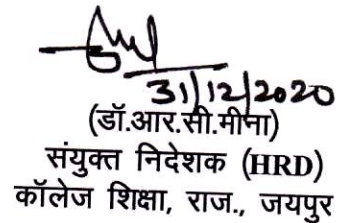 31/12/2020
(डॉ.आर.सी.मीना)
संयुक्त निदेशक (HRD)
कॉलेज शिक्षा, राज., जयपुर